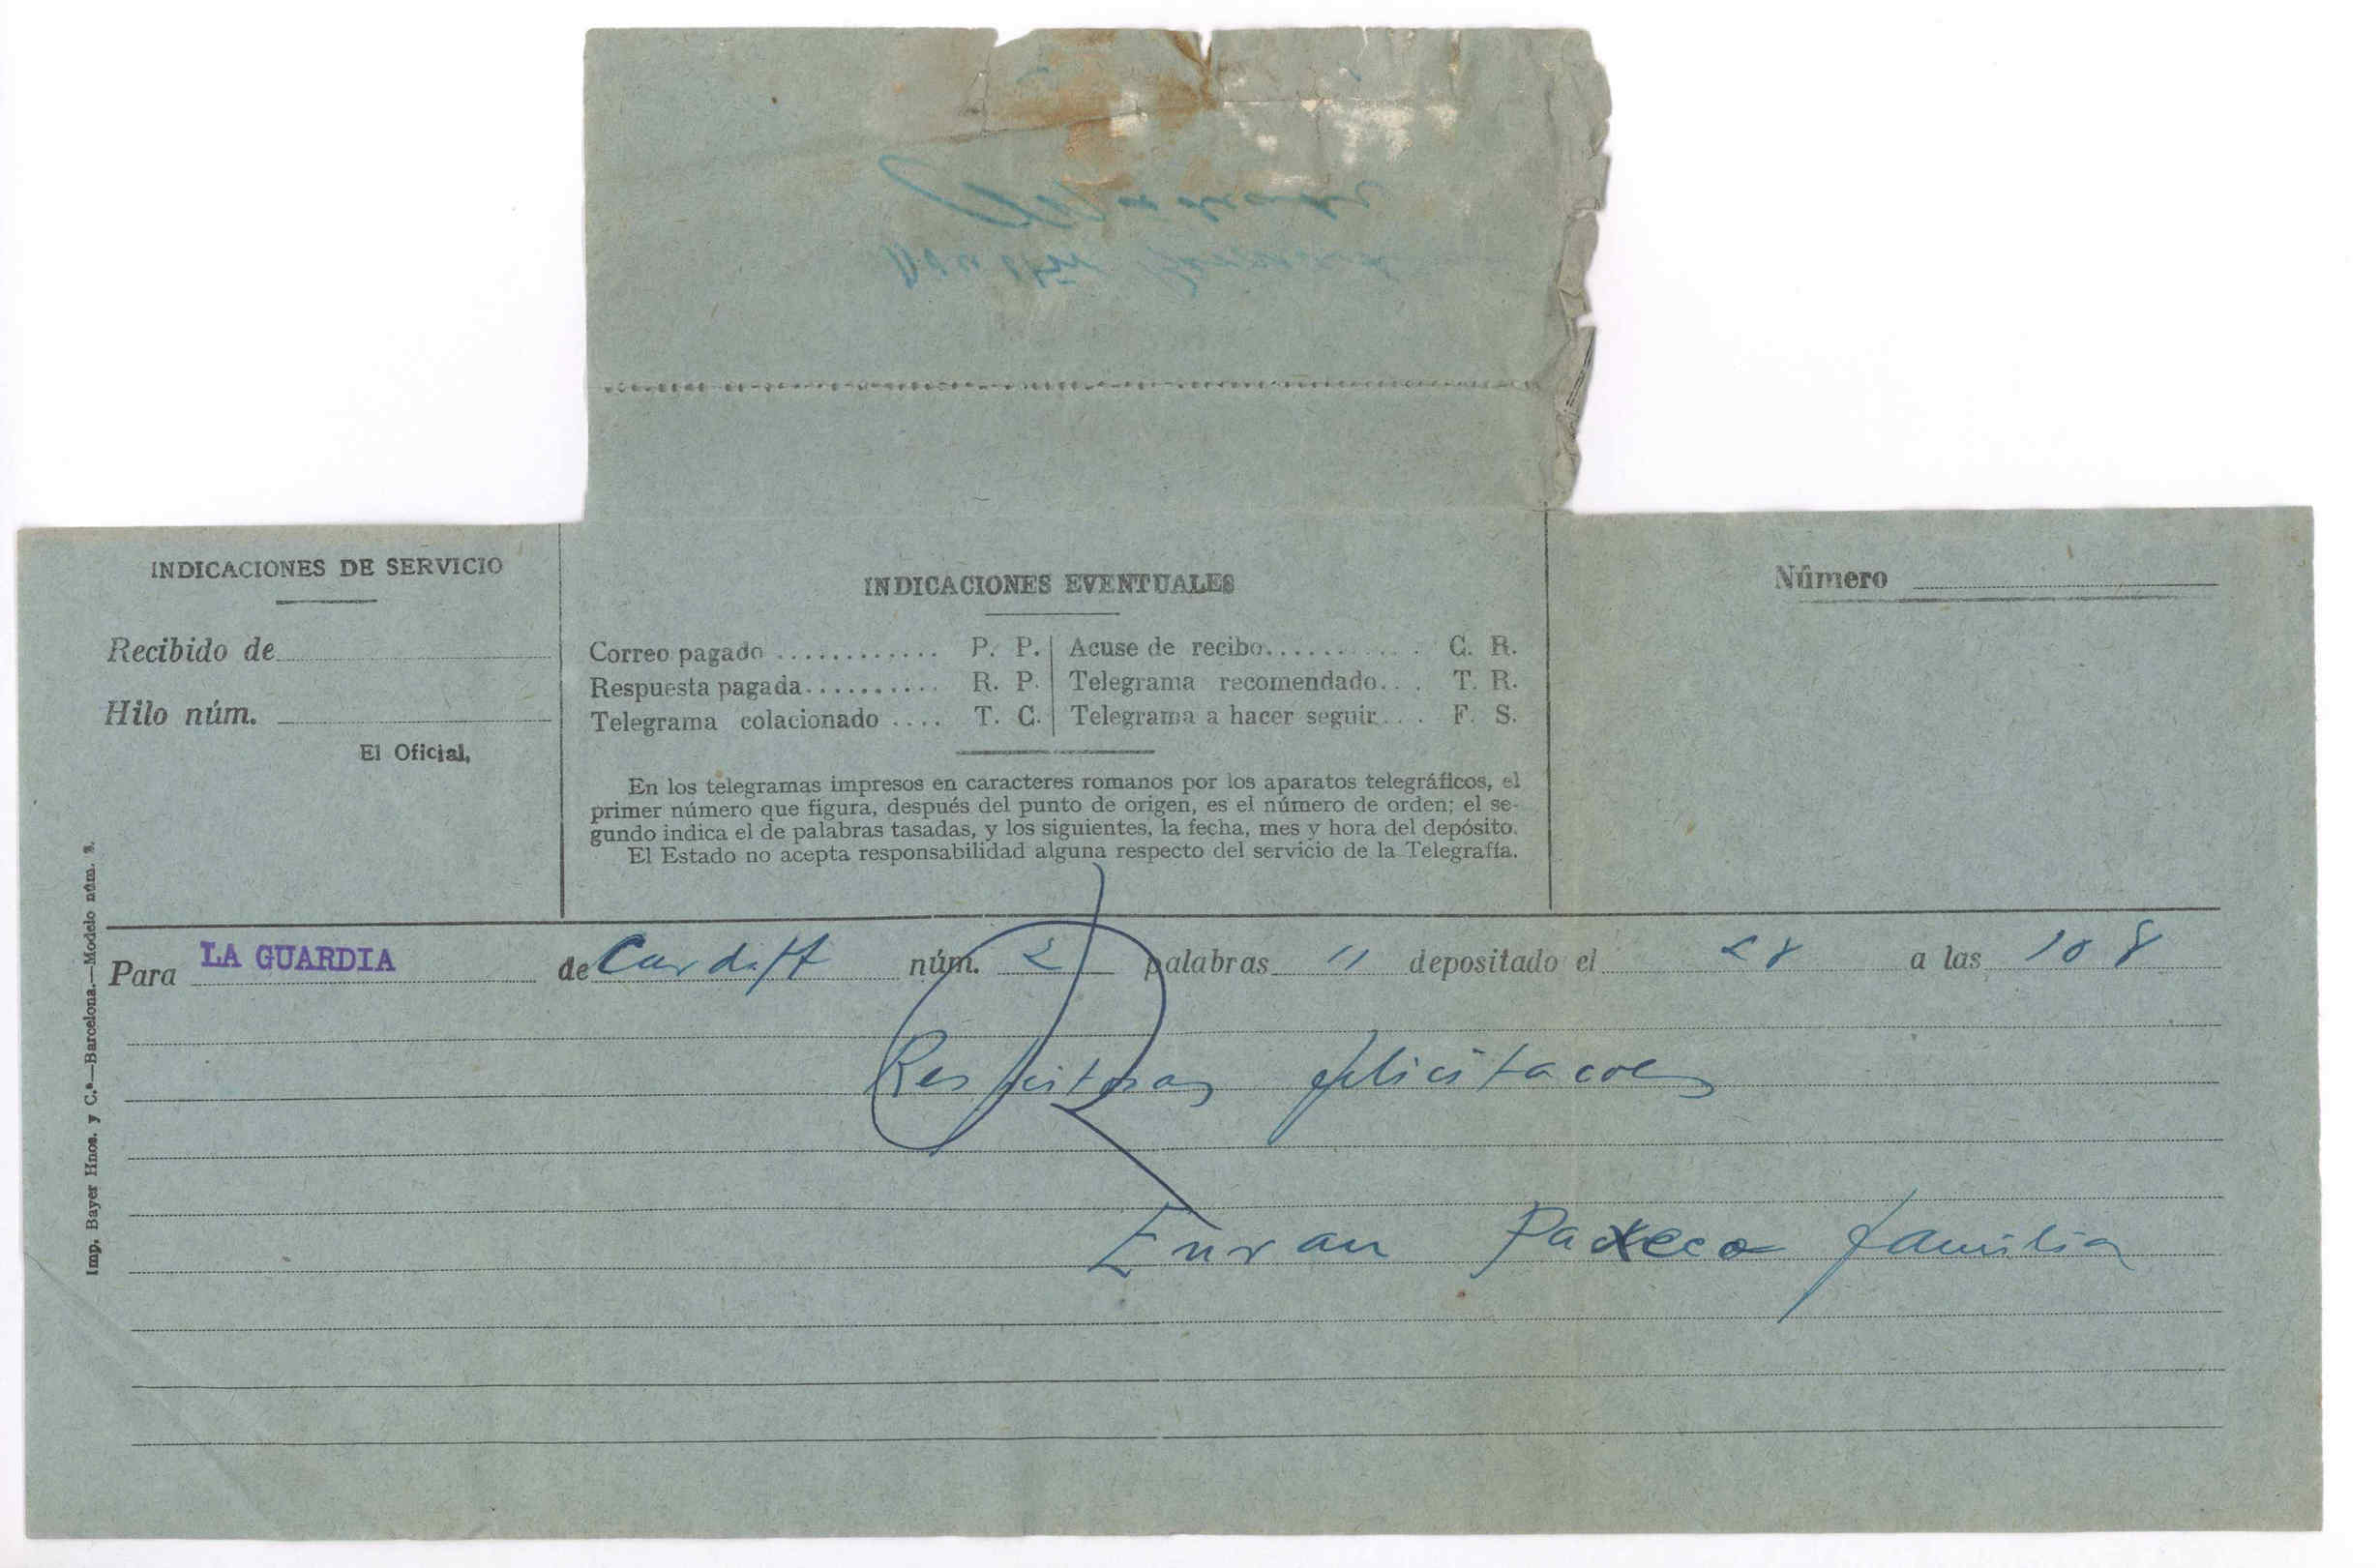 INDICACIONES DE SERVICIO
Recibido de
Hilo núm.
El Oficial,
INDICACIONES EVENTUALES
Correo pagado ............ P. P. | Acuse de recibo........... C. R.
Respuesta pagada.......... R. P. | Telegrama recomendado... . T. R.
Telegrama colacionado .... T. C. | Telegrama a hacer seguir... . F. S.
En los telegramas impresos en caracteres romanos por los aparatos telegráficos, el
primer número que figura, después del punto de origen, es el número de orden; el se-
gundo indica el de palabras tasadas, y los siguientes, la fecha, mes y hora del depósito.
El Estado no acepta responsabilidad alguna respecto del servicio de la Telegrafía.
Número
Imp. Bayer Hnos. y C.ª—Barcelona.—Modelo núm. 2.
Para LA GUARDIA de Cardiff núm. 2 palabras 11 depositado el 28 a las 10 8
Respeitosas felicitacoes
Enran Paxeco familia